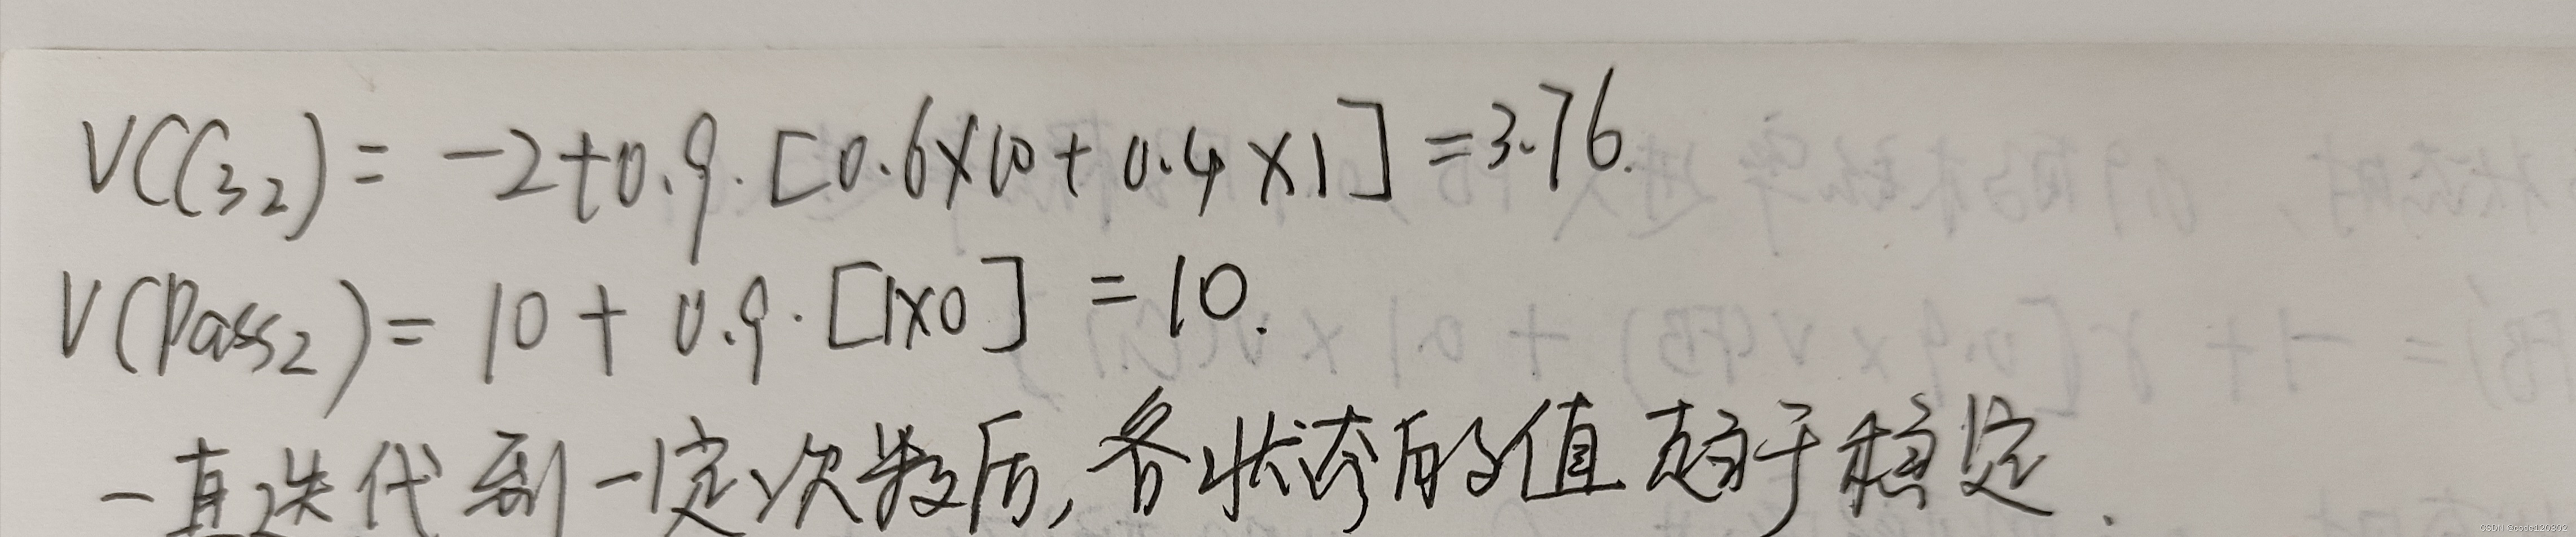 V(C₃₂) = -2+0.9·[0.6×10+0.4×1] =3.76.
V(Pass₂) = 10+0.9·[1×0] =10.
一直迭代到一定次数后,各状态的值趋于稳定.
CSDN @code120802